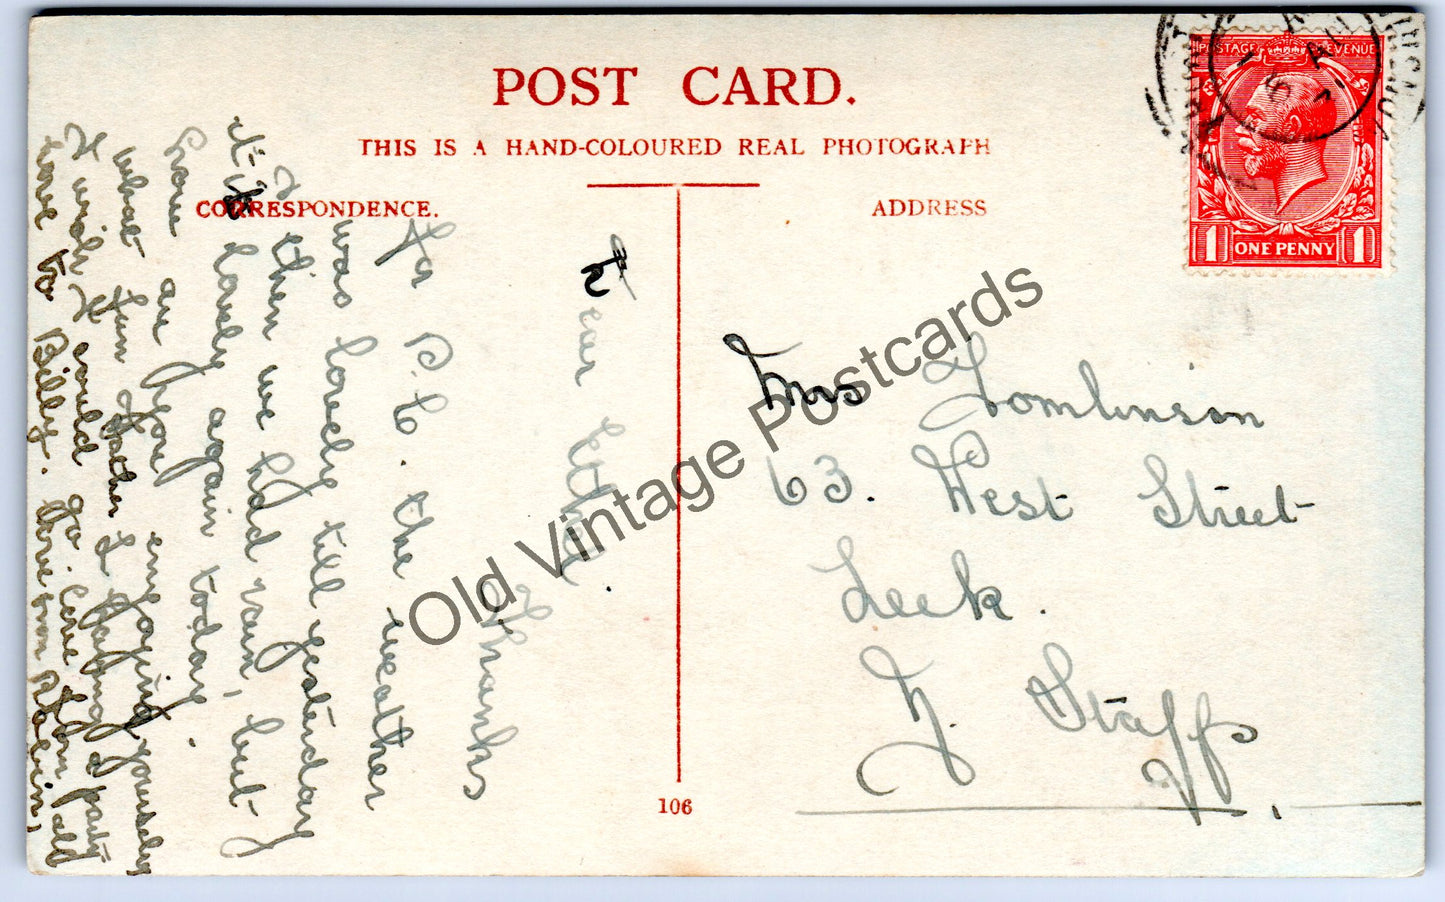 POST CARD.
THIS IS A HAND-COLOURED REAL PHOTOGRAPH
CORRESPONDENCE.
ADDRESS
POSTAGE REVENUE
1 ONE PENNY 1
Dear Ethel
Thanks
for P.C. the weather
was lovely till yesterday
& then we had rain, but
it is lovely again today.
hope you are enjoying yourself
what fun Father & having a party
I wish I could go.
love to Billy. love from
Mrs Tomlinson
63. West Street
Leek.
N. Staffs.
106
Old Vintage Postcards